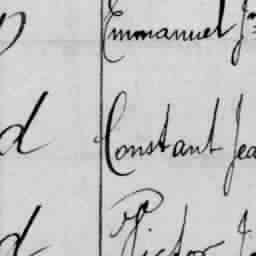 Emmanuel
d Constant Jea
d Victor